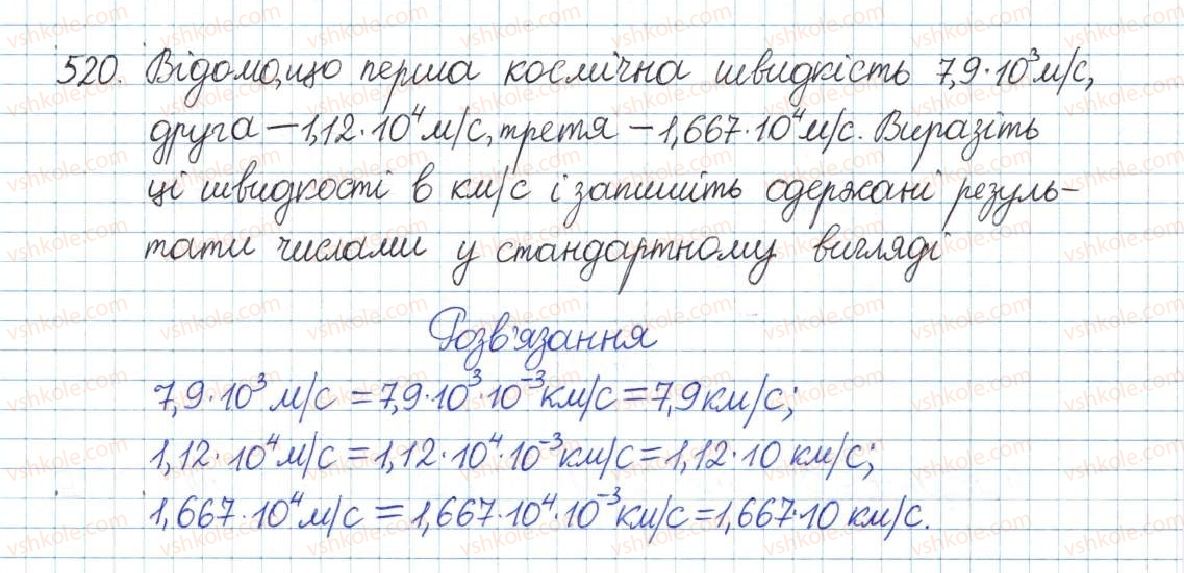 520. Відомо, що перша космічна швидкість 7,9·10³ м/с,
друга – 1,12·10⁴ м/с, третя – 1,667·10⁴ м/с. Виразіть
ці швидкості в км/с і запишіть одержані резуль-
тати числами у стандартному вигляді
Розв'язання
7,9·10³ м/с = 7,9·10³·10⁻³ км/с = 7,9 км/с;
1,12·10⁴ м/с = 1,12·10⁴·10⁻³ км/с = 1,12·10 км/с;
1,667·10⁴ м/с = 1,667·10⁴·10⁻³ км/с = 1,667·10 км/с.